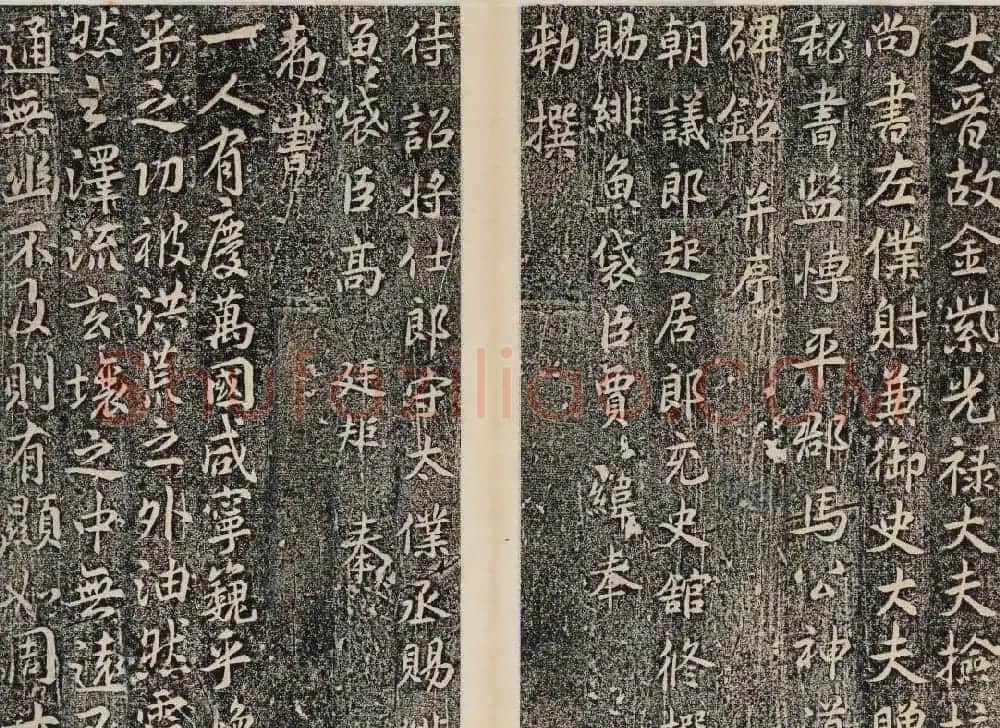 大晉故金紫光禄大夫撿
尚書左僕射兼御史大夫贈
秘書監愽平郡馬公神道
碑銘 并序
朝議郎起居郎充史舘修撰
賜緋魚袋臣賈緯奉
勑撰
待詔將仕郎守太僕丞賜緋
魚袋臣高 廷矩 奉
勑書
一人有慶萬國咸寧巍乎煥
乎之功被洪荒之外油然霈
然之澤流玄壤之中無遠不
通無幽不及則有顯如周
Shufaziliao.COM